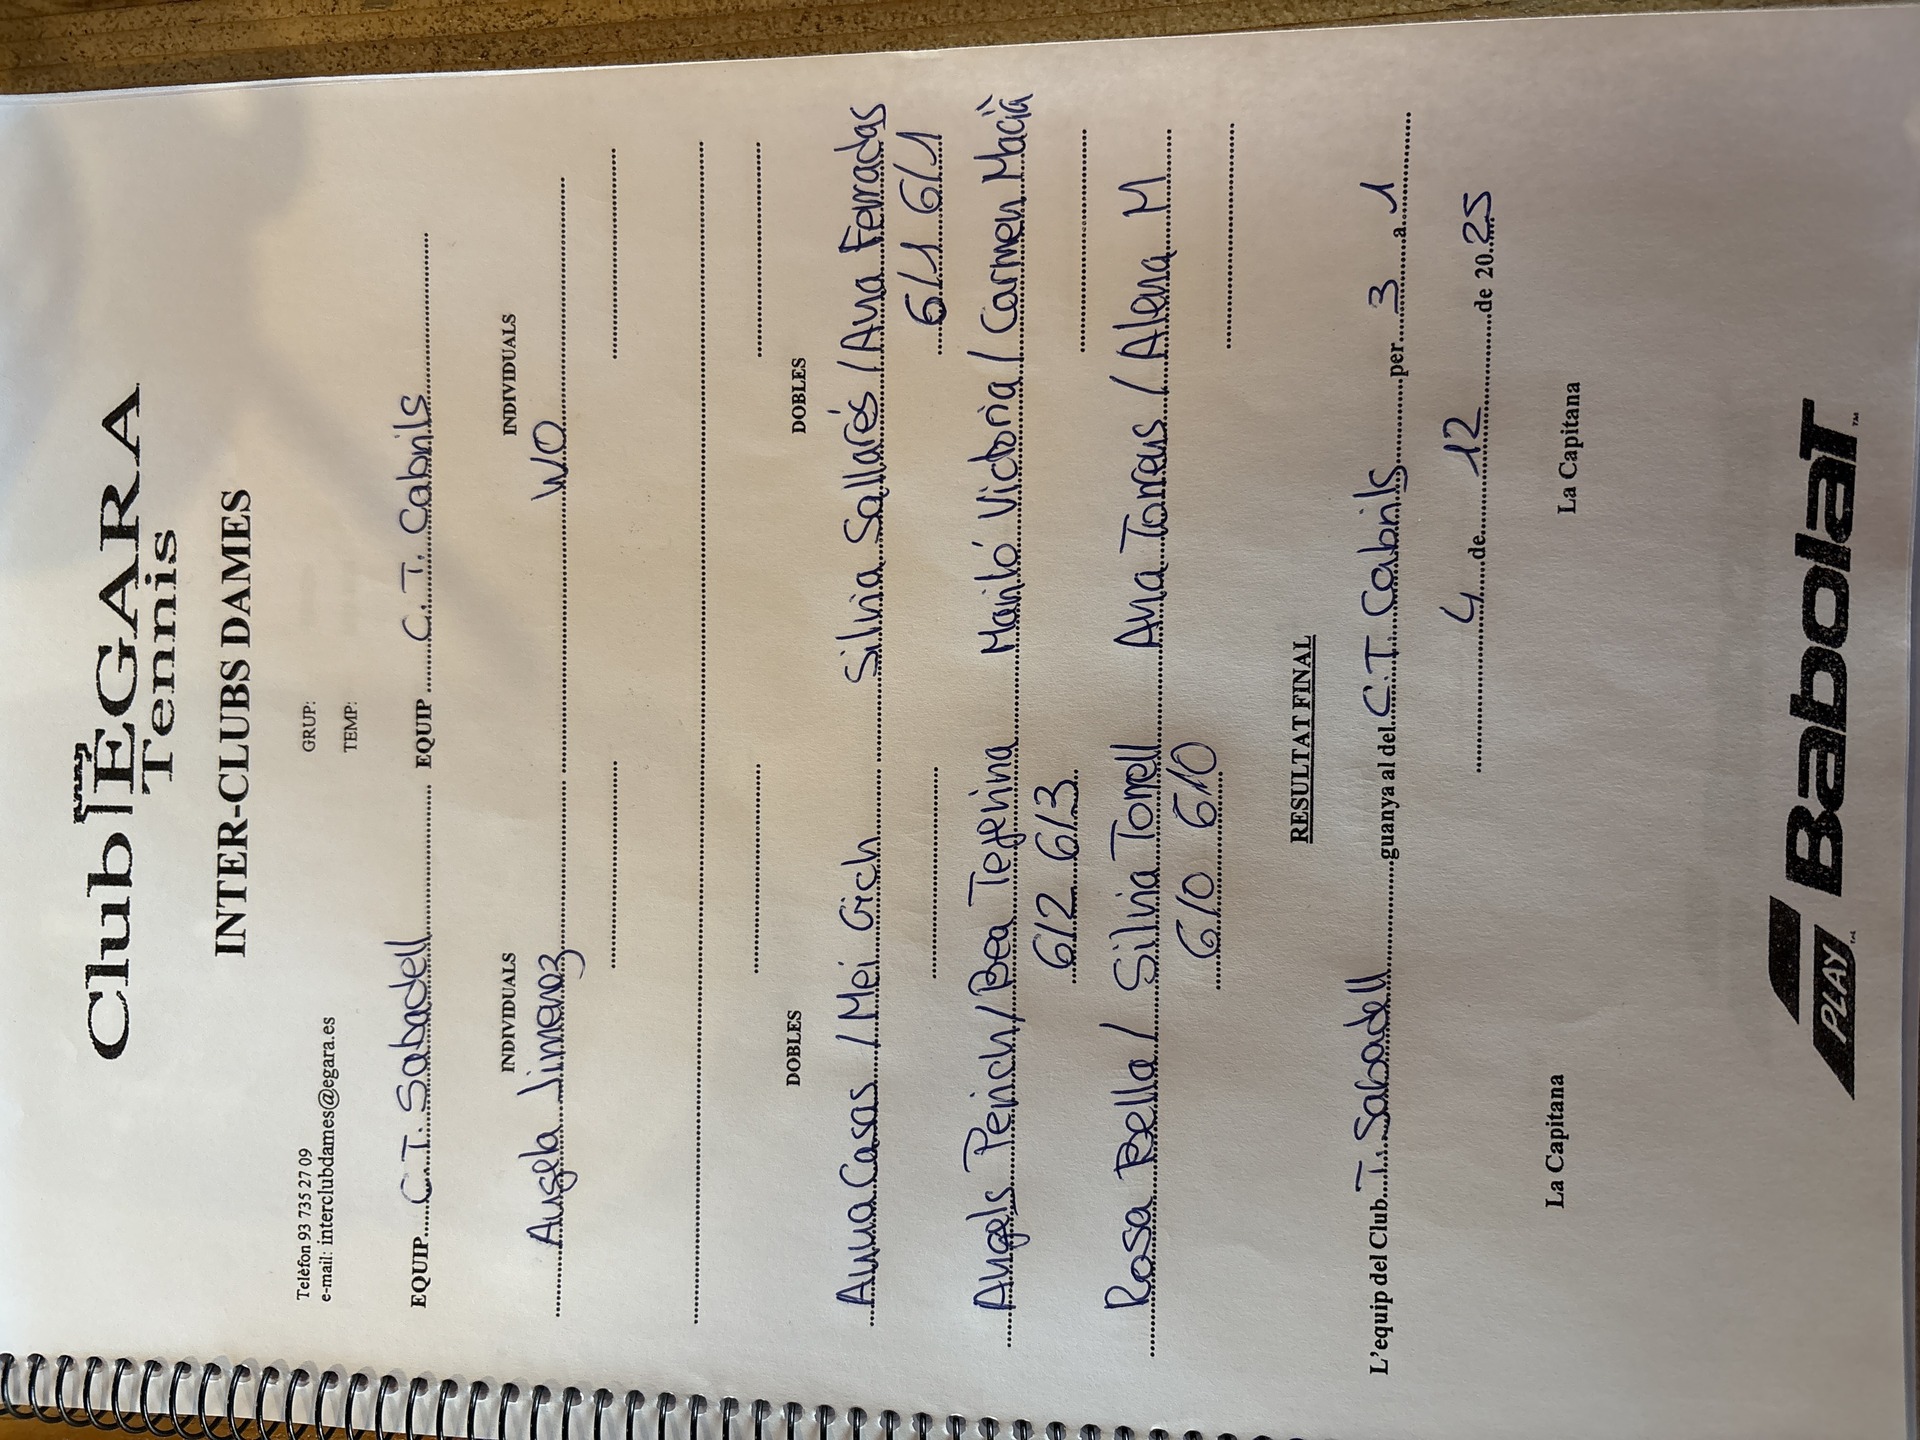 Club EGARA
Tennis
INTER-CLUBS DAMES
Telèfon 93 735 27 09 GRUP:
e-mail: interclubdames@egara.es TEMP:
EQUIP C.T. Sabadell EQUIP C.T. Cabrils
INDIVIDUALS INDIVIDUALS
Angela Jimenez W.O
DOBLES DOBLES
Anna Casas / Mei Gich Silvia Sallarés / Anna Ferradas
6/1 6/1
Angels Perich / Bea Tegerina Mariló Victoria / Carmen Macià
6/2 6/3
Rosa Bella / Silvia Torrell Ana Torrens / Alena M
6/0 6/0
RESULTAT FINAL
L'equip del Club T. Sabadell guanya al del C.T. Cabrils per 3 a 1
4 de 12 de 20 25
La Capitana La Capitana
PLAY™ BabolaT™